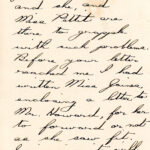 and she, and
Miss Pettet are
there to grapple
with such problems.
Before your letter
reached me I had
written Miss James,
enclosing a letter to
Mr. Howard, for her
to forward or not
as she saw fit.